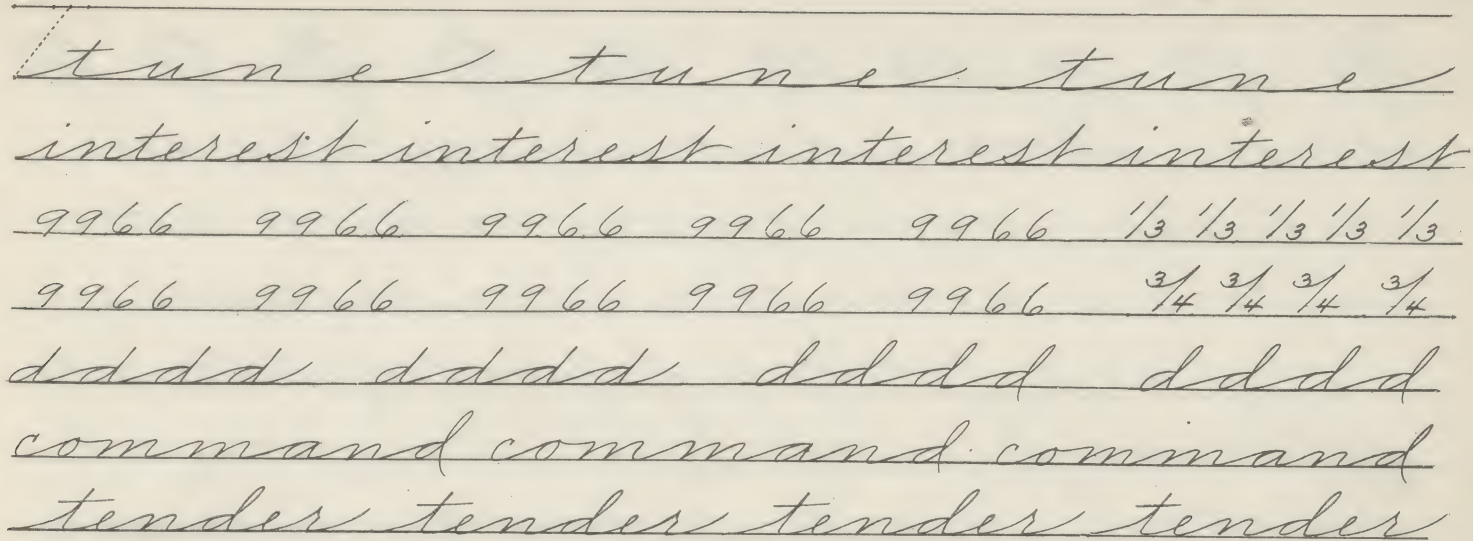 tune tune tune
interest interest interest interest
9966 9966 9966 9966 9966 1/3 1/3 1/3 1/3 1/3
9966 9966 9966 9966 9966 3/4 3/4 3/4 3/4
dddd dddd dddd dddd
command command command
tender tender tender tender